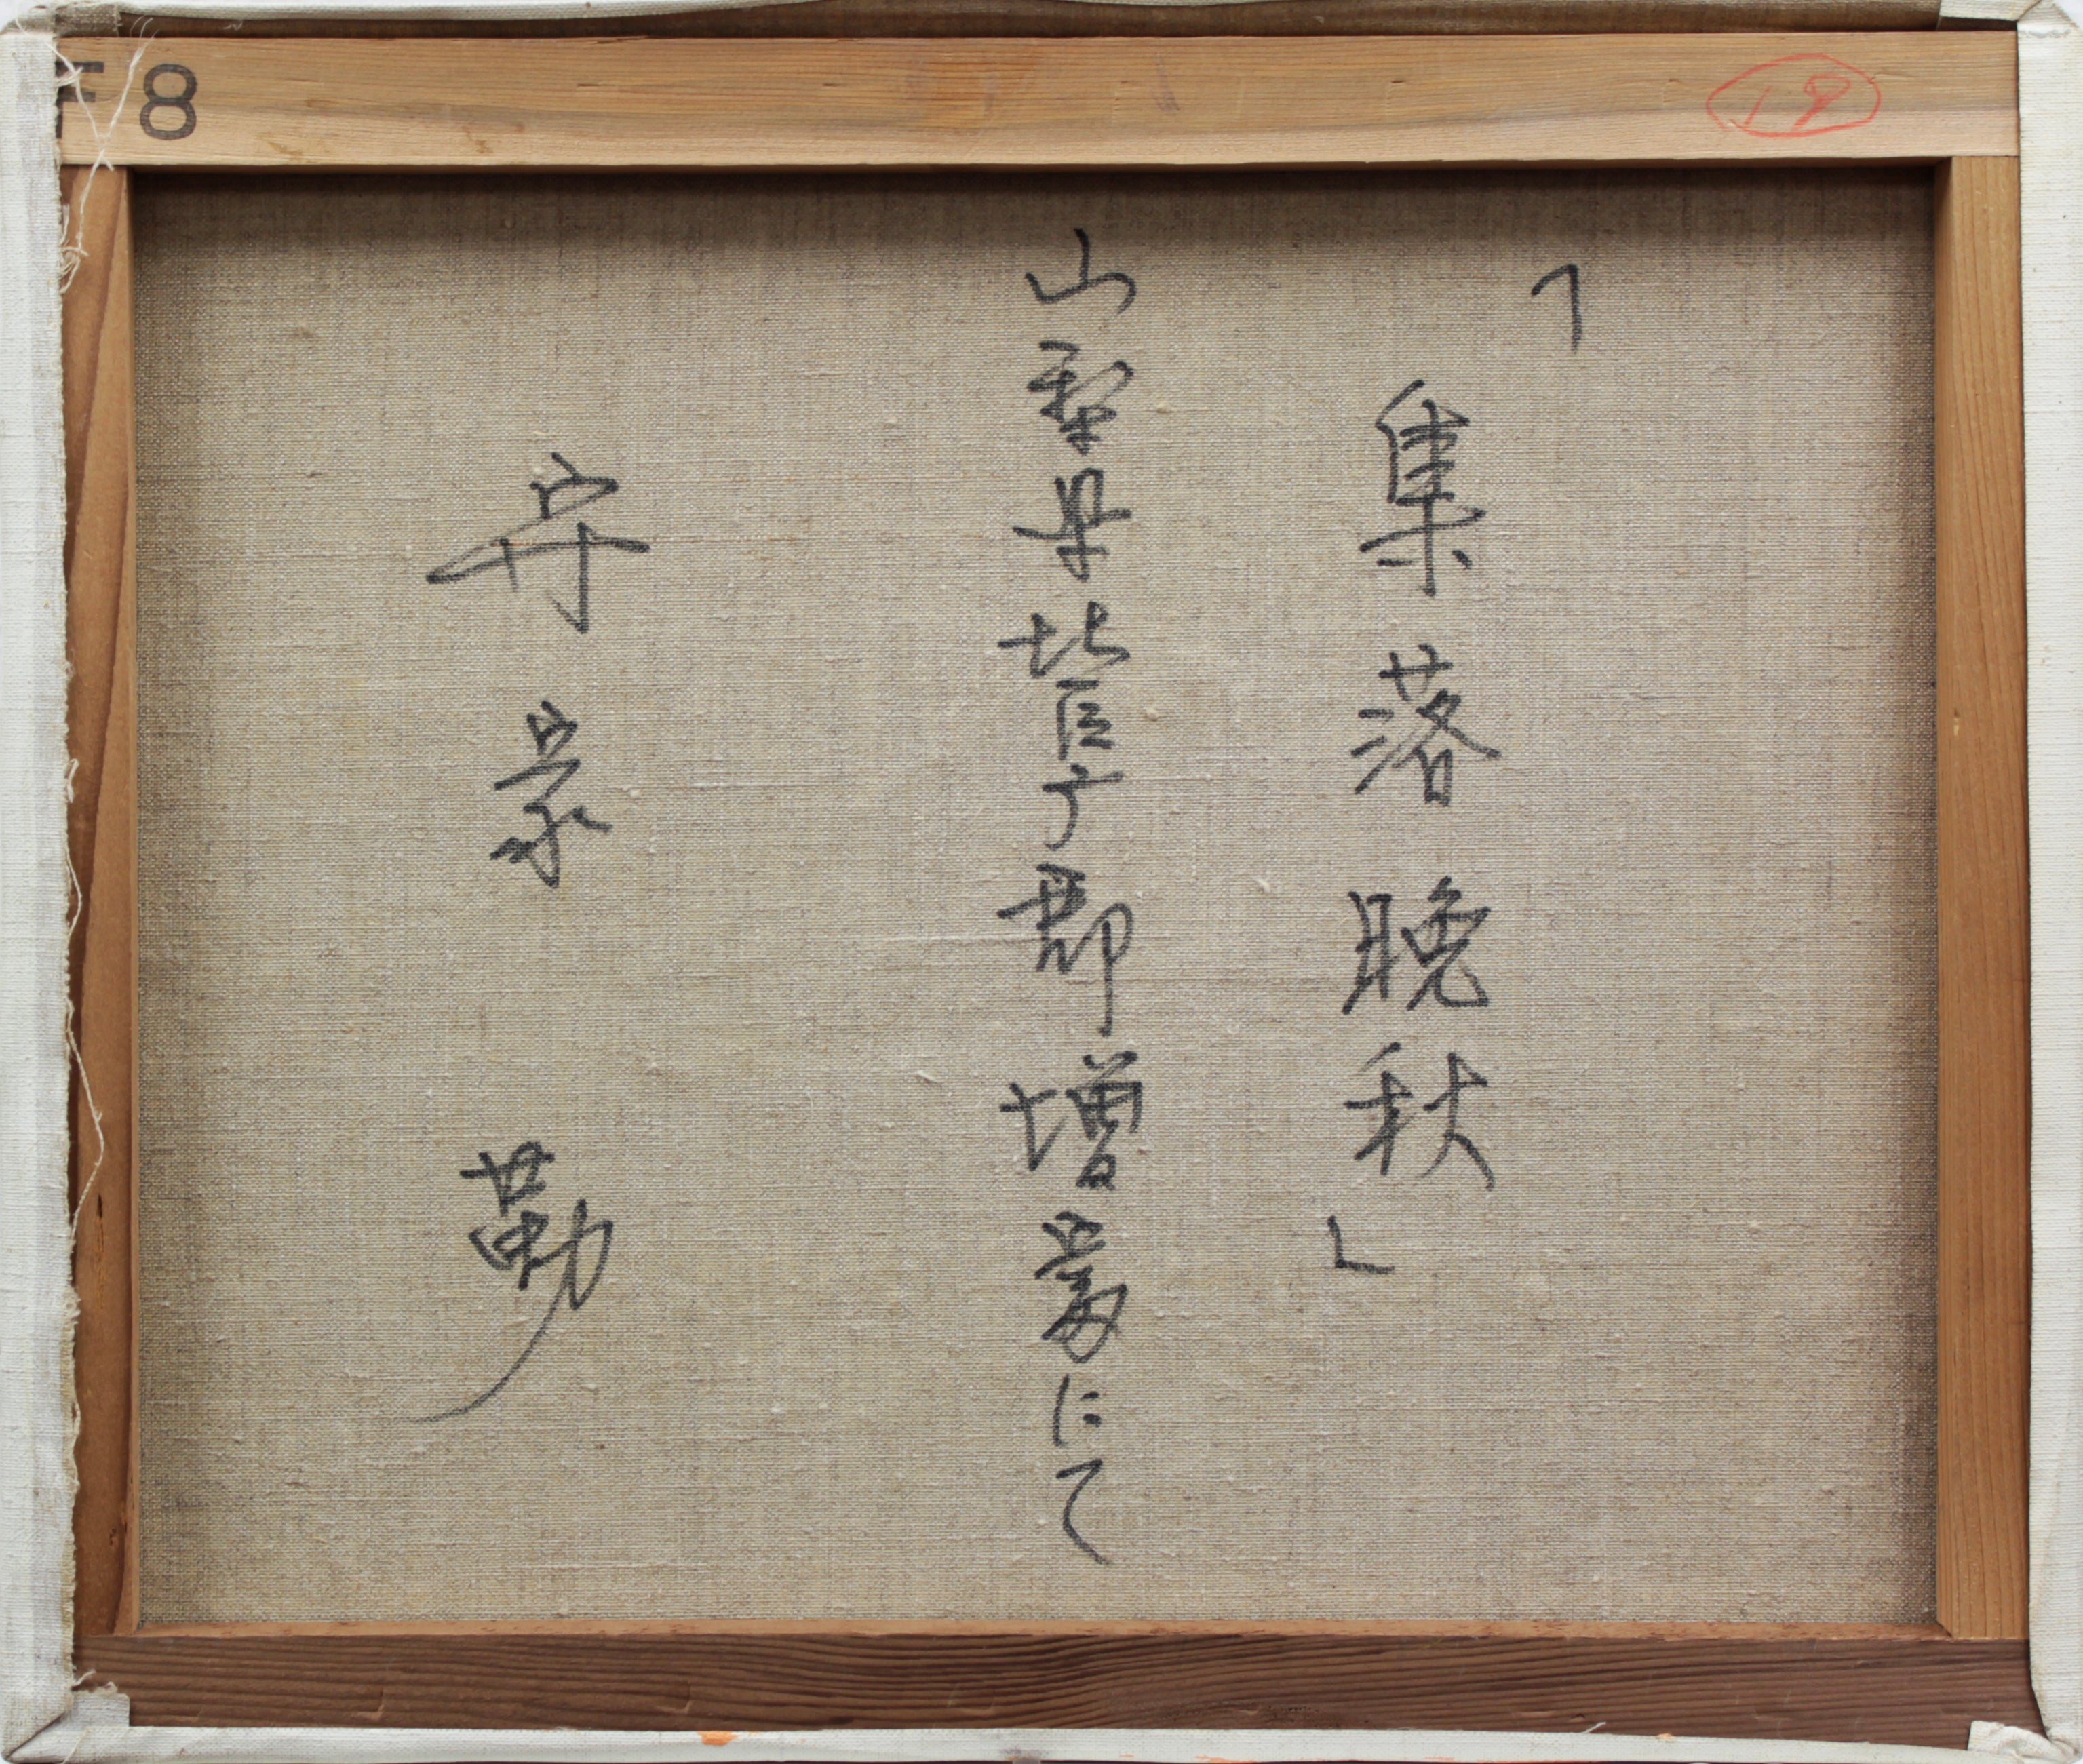 F8
19
「集落晩秋」
山梨県北巨广郡増富にて
勤